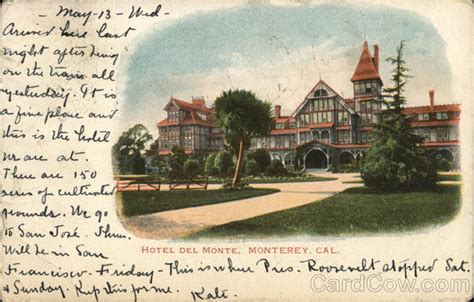 May-13-Wed-
Arrived here last
night after being
on the train all
yesterday. It is
a fine place and
this is the hotel
we are at.
There are 150
acres of cultivated
grounds. We go
to San José. Thurs.
Will be in San
Francisco - Friday - This is where Pres. Roosevelt stopped Sat.
& Sunday. Keep this for me. Kate.
HOTEL DEL MONTE, MONTEREY, CAL.
CardCow.com